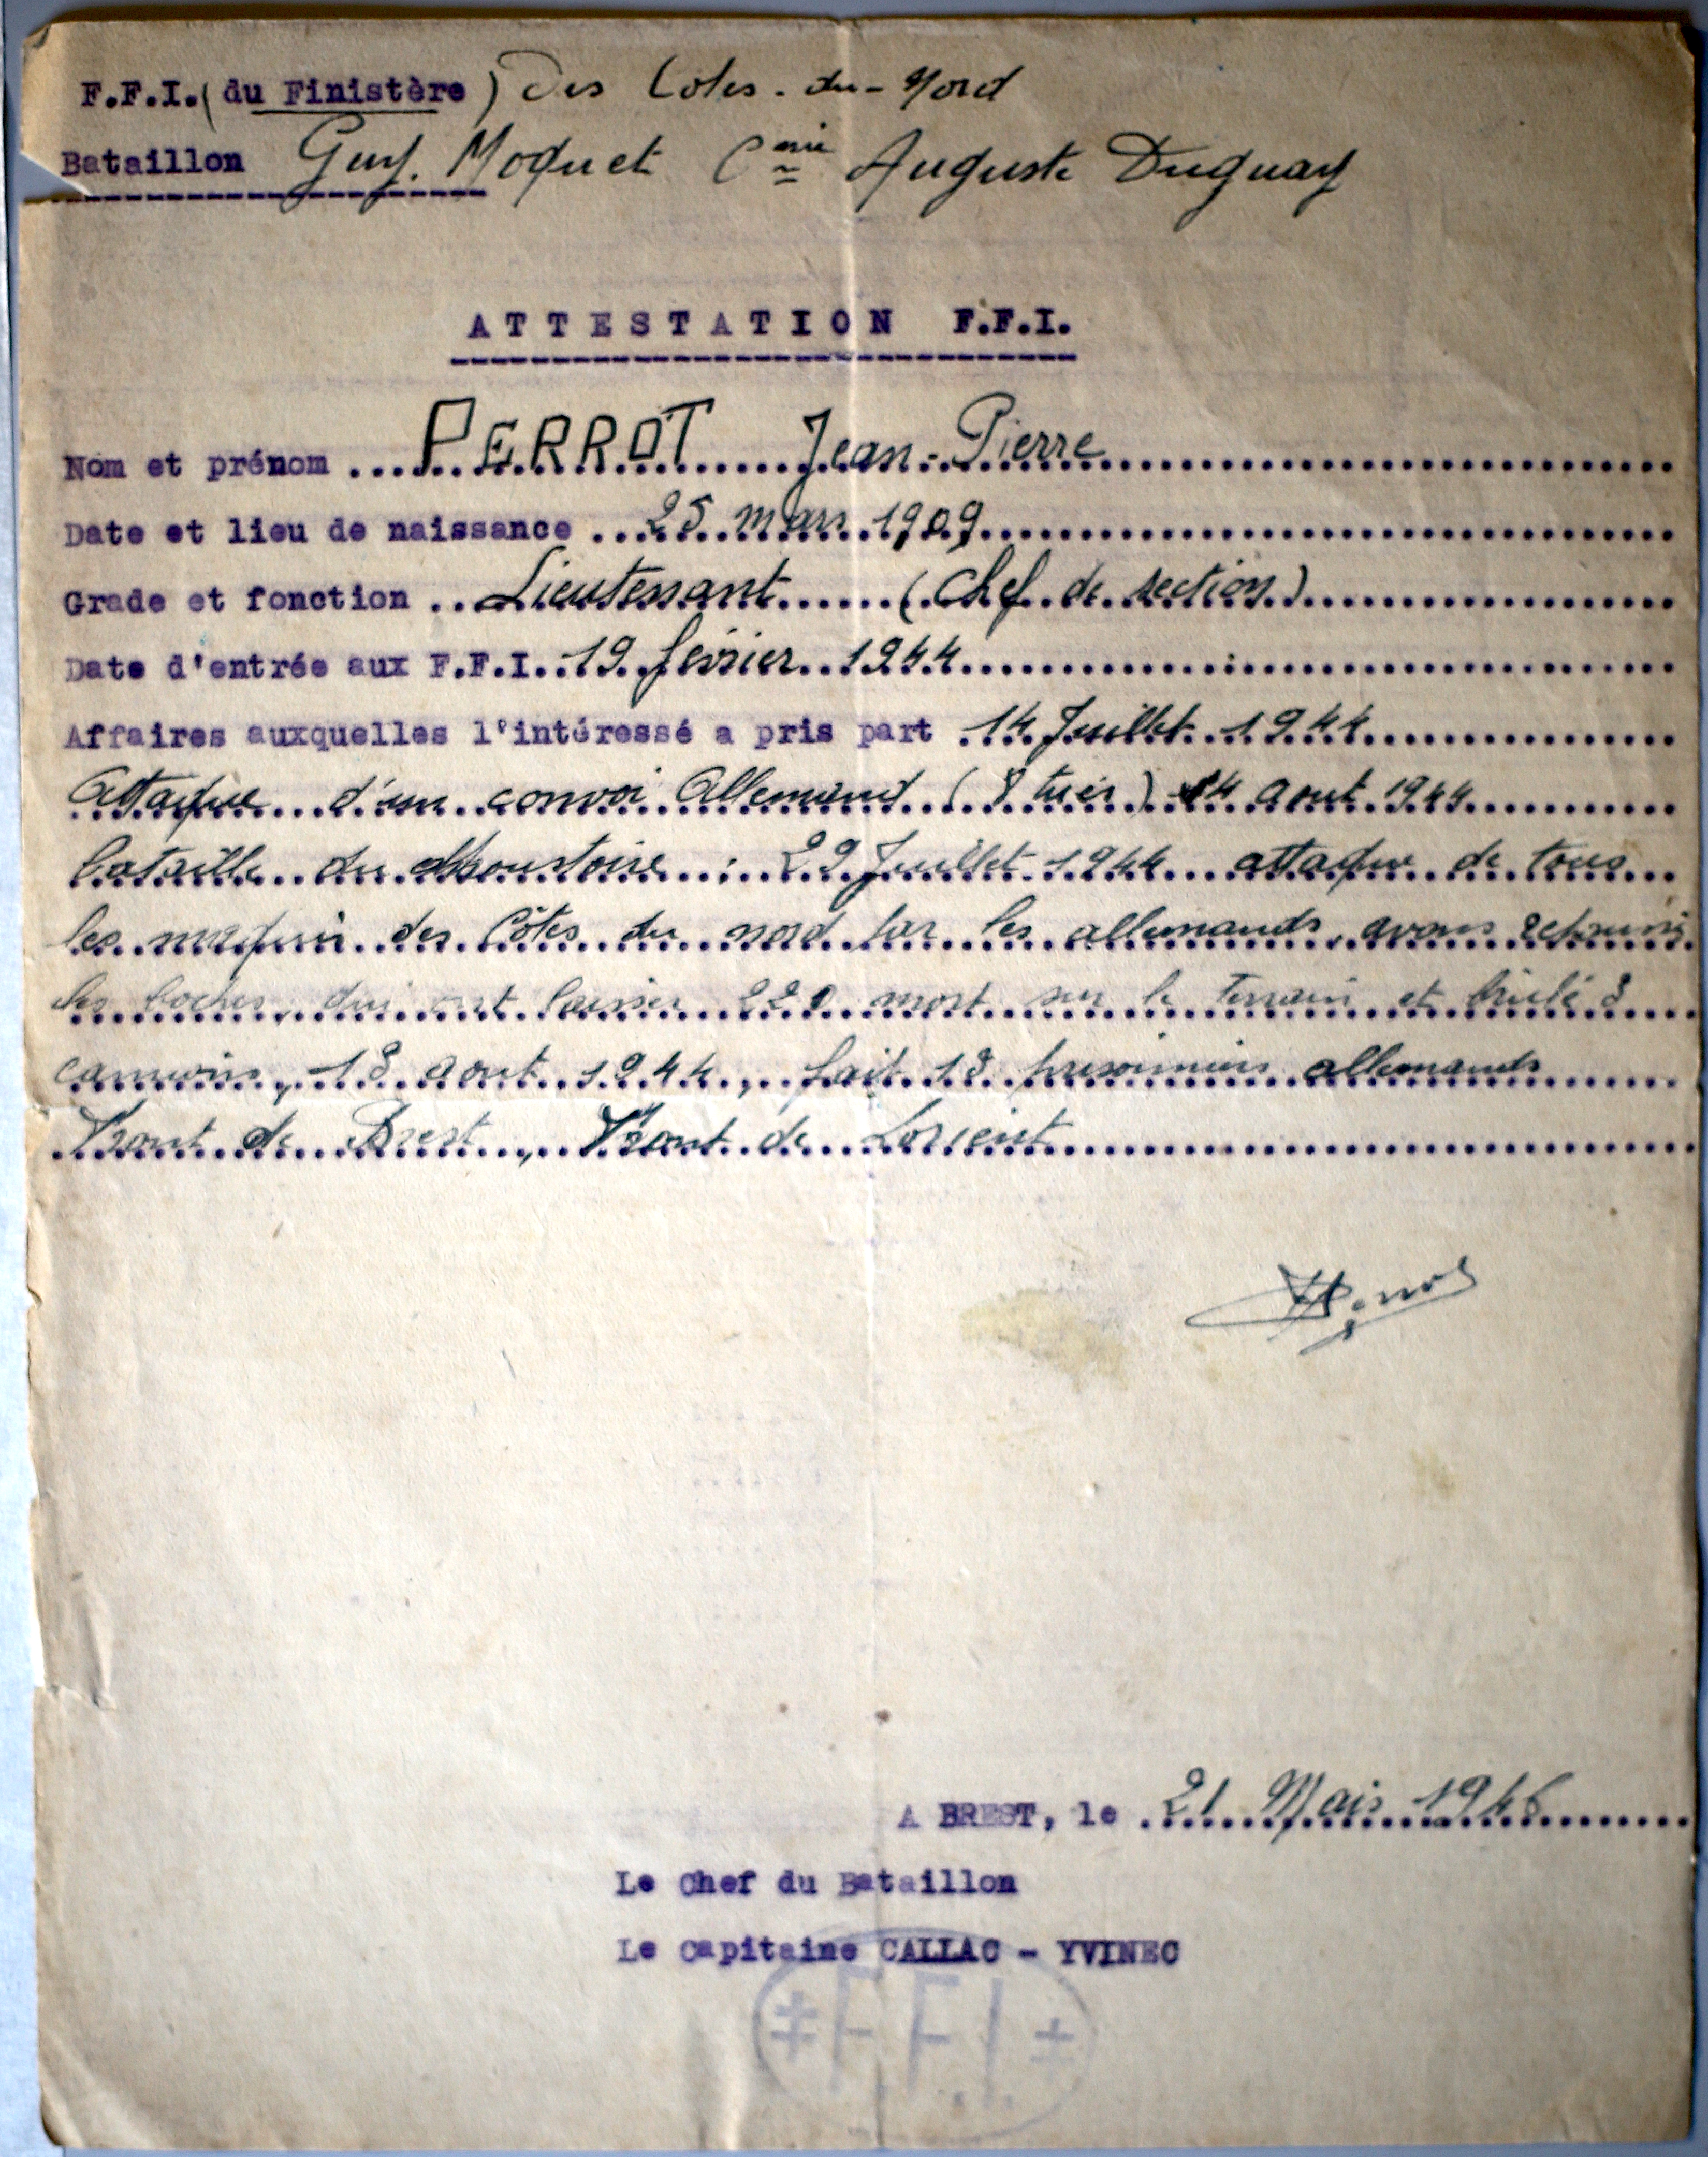 F.F.I. (du Finistère) Des Côtes-du-Nord
Bataillon Guy Moquet Cnie Auguste Duguay
ATTESTATION F.F.I.
Nom et prénom ... PERROT Jean-Pierre
Date et lieu de naissance ... 25 mars 1909
Grade et fonction .. Lieutenant (Chef de section)
Date d'entrée aux F.F.I. 19 février 1944
Affaires auxquelles l'intéressé a pris part 14 Juillet 1944
attaque d'un convoi Allemand (8 tués) 14 aout 1944
bataille du Moustoire : 29 Juillet 1944 attaque de tous
les maquis des Côtes du nord par les allemands, avons
les boches, qui ont laisser mort sur le terrain et brulé 8
camions, 18 aout 1944, fait 18 prisonniers allemands
Front de Brest, Front de Lorient
A BREST, le 21 Mais 1946
Le Chef du Bataillon
Le Capitaine CALLAC - YVINEC
F.F.I.